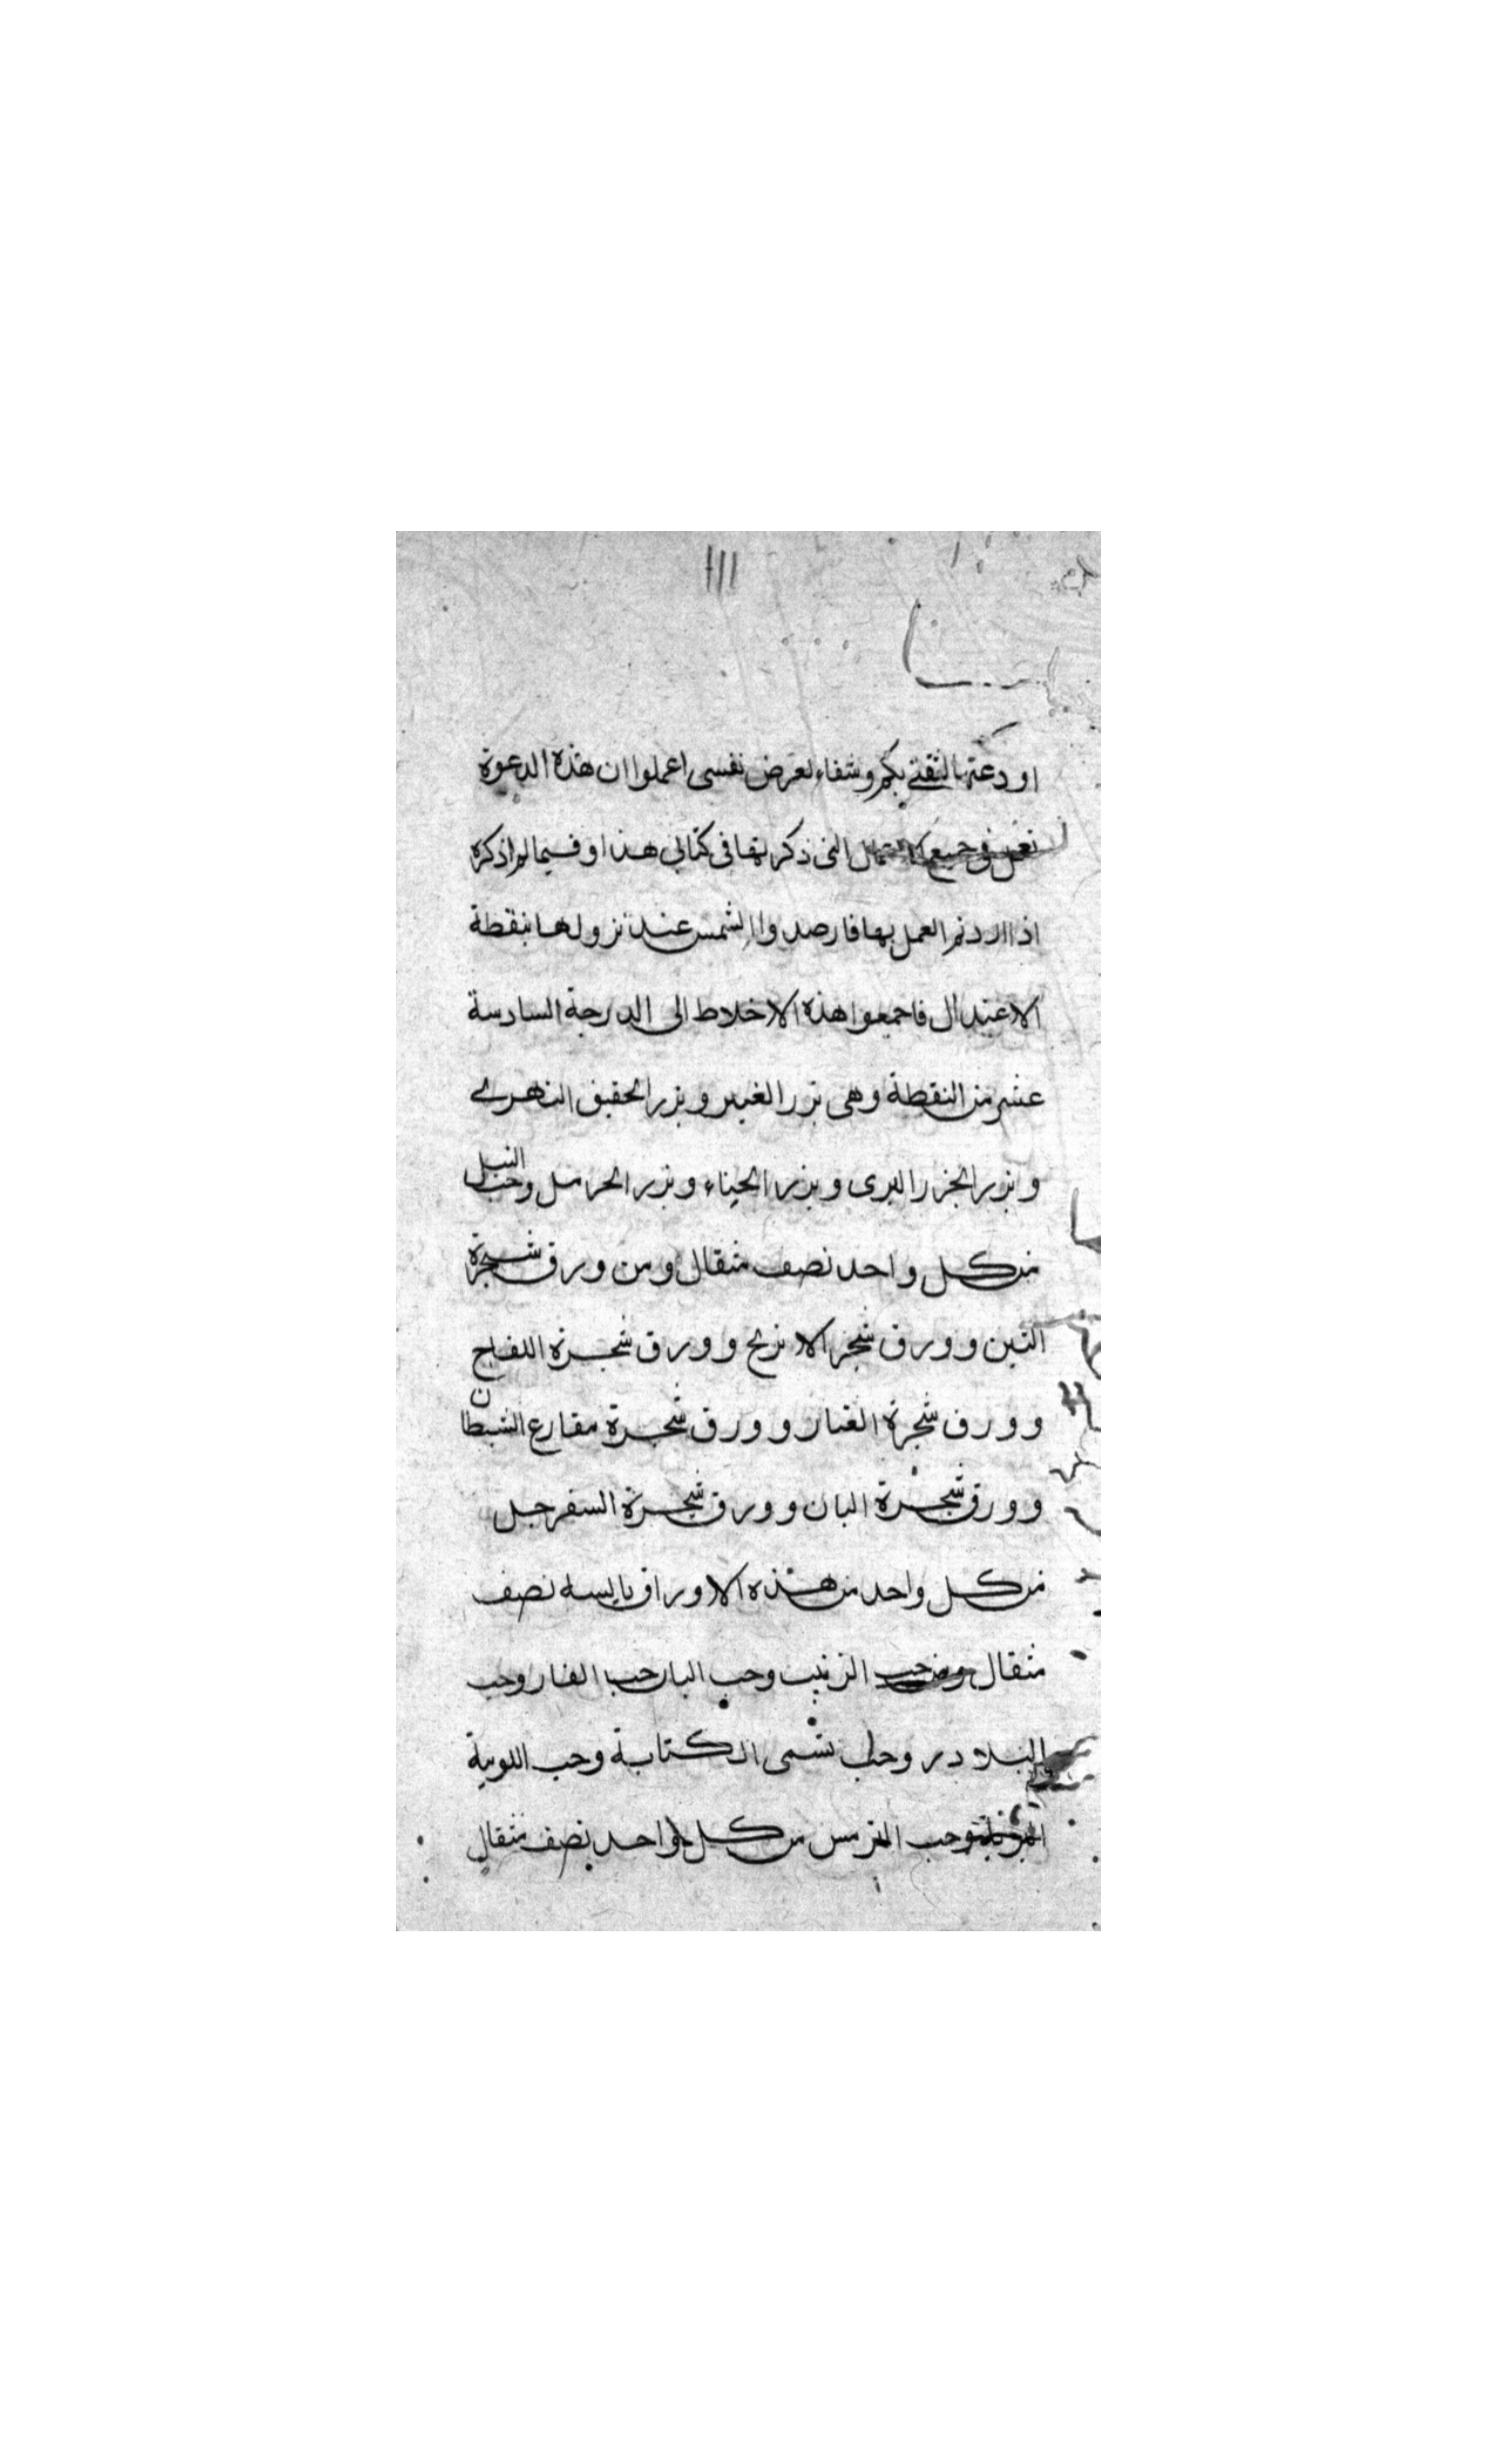 ١١١
اودعتها لثقتى بكم وشفاء لغرض نفسى اعملوا ان هذه الدعوة
تعمل فى جميع الاعمال التى ذكرتها فى كتابى هذا او فيما لم اذكره
اذا اردتم العمل بها فارصدوا الشمس عند نزولها بنقطة
الاعتدال فاجمعوا هذه الاخلاط الى الدرجة السادسة
عشر من النقطة وهى بزر وبزر الحقبق النهرى
وبزر الجزر البرى وبزر الحناء وبزر الحرمل وحب النيل
من كل واحد نصف مثقال ومن ورق شجرة
التين وورق شجر الاترج وورق شجرة اللفاح
وورق شجرة الغار وورق شجرة مقارع الشيطان
وورق شجرة البان وورق شجرة السفرجل
من كل واحد من هذه الاوراق يابسه نصف
مثقال ومن حب الزبيب وحب البان حب الغار وحب
البلادر وحب تسمى الكتابة وحب اللوبية
وحب الترمس من كل واحد نصف مثقال